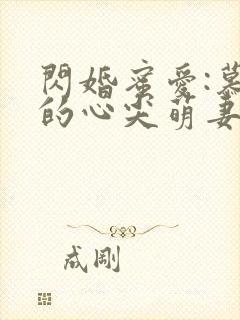 閃婚蜜愛:慕
的心尖萌妻
成剛